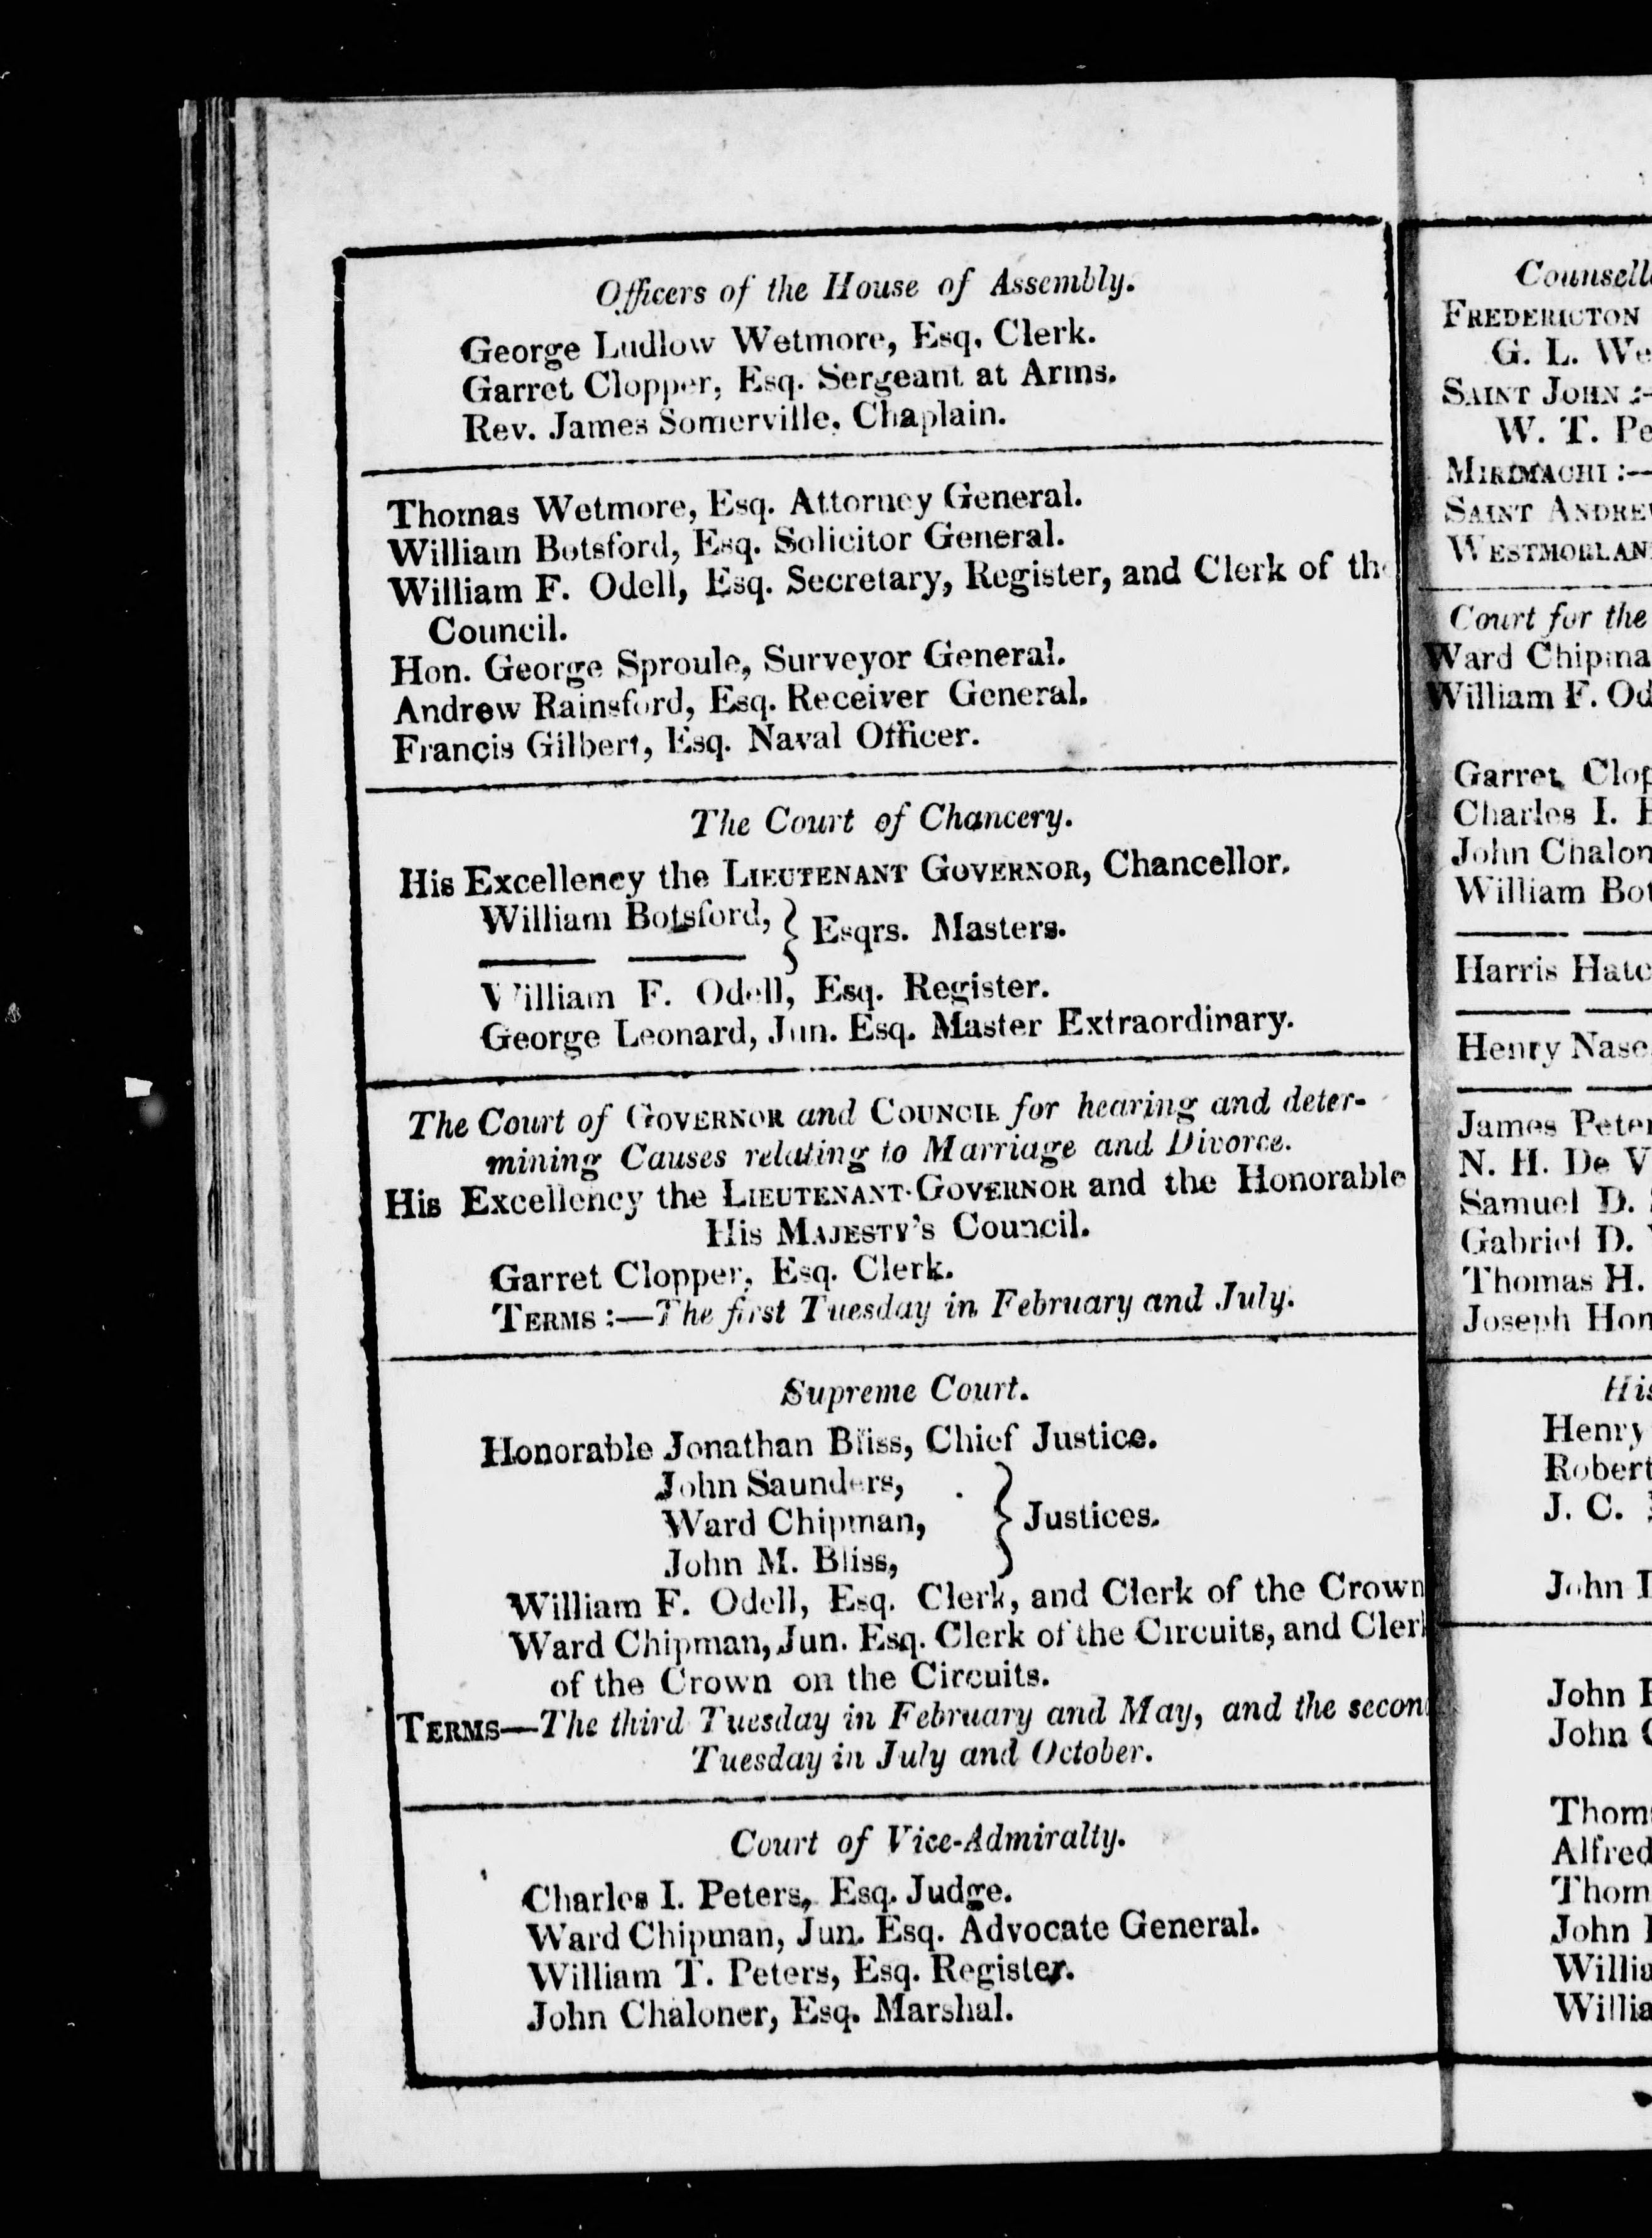 Officers of the House of Assembly.
George Ludlow Wetmore, Esq. Clerk.
Garret Clopper, Esq. Sergeant at Arms.
Rev. James Somerville, Chaplain.
Thomas Wetmore, Esq. Attorney General.
William Botsford, Esq. Solicitor General.
William F. Odell, Esq. Secretary, Register, and Clerk of the
Council.
Hon. George Sproule, Surveyor General.
Andrew Rainsford, Esq. Receiver General.
Francis Gilbert, Esq. Naval Officer.
The Court of Chancery.
His Excellency the LIEUTENANT GOVERNOR, Chancellor.
William Botsford, } Esqrs. Masters.
William F. Odell, Esq. Register.
George Leonard, Jun. Esq. Master Extraordinary.
The Court of GOVERNOR and COUNCIL for hearing and deter-
mining Causes relating to Marriage and Divorce.
His Excellency the LIEUTENANT-GOVERNOR and the Honorable
His MAJESTY's Council.
Garret Clopper, Esq. Clerk.
TERMS:—The first Tuesday in February and July.
Supreme Court.
Honorable Jonathan Bliss, Chief Justice.
John Saunders,
Ward Chipman, } Justices.
John M. Bliss,
William F. Odell, Esq. Clerk, and Clerk of the Crown
Ward Chipman, Jun. Esq. Clerk of the Circuits, and Clerk
of the Crown on the Circuits.
TERMS—The third Tuesday in February and May, and the second
Tuesday in July and October.
Court of Vice-Admiralty.
Charles I. Peters, Esq. Judge.
Ward Chipman, Jun. Esq. Advocate General.
William T. Peters, Esq. Register.
John Chaloner, Esq. Marshal.
FREDERICTON
G. L.
SAINT JOHN:—
W. T.
MIRIMACHI:—
SAINT
Court for the
Ward
William F.
Garret
Charles I.
John
William
Harris
Henry Nase
James
N. H. De
Samuel D.
Gabriel D.
Thomas H.
Joseph
Henry
Robert
J. C.
John
John
John
Alfred
John